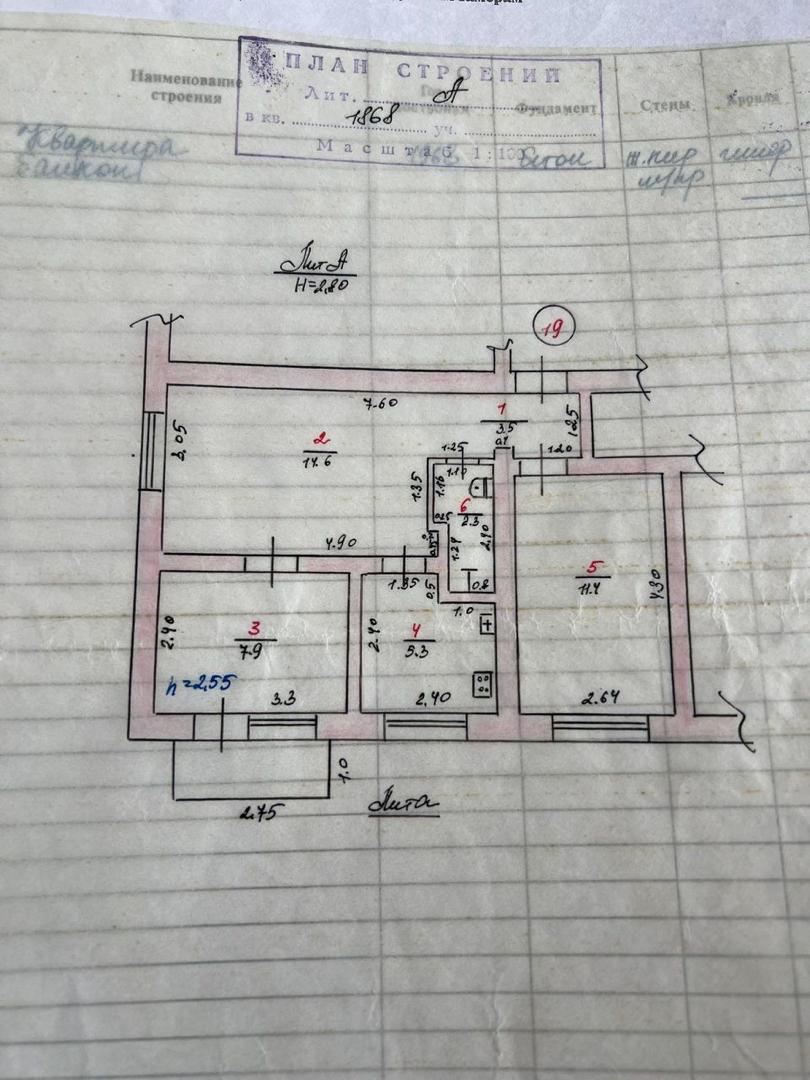 Наименование
строения
фундамент
Стены
Кровля
ПЛАН СТРОЕНИЙ
Лит. А
в кв. 1868 уч.
Масштаб 1:100
Квартира
балкон
Лит А
H=2,80
19
7.60
1
3.5
1.25
3.05
2
17.6
1.25
1.20
1.10
1.35
1.15
6
2.3
2.40
1.24
4.90
1.35
0.5
0.8
1.0
5
11.4
4.30
2.40
3
7.9
2.40
4
5.3
h=2,55
3.3
2.40
2.64
1.0
2.75
Лит а